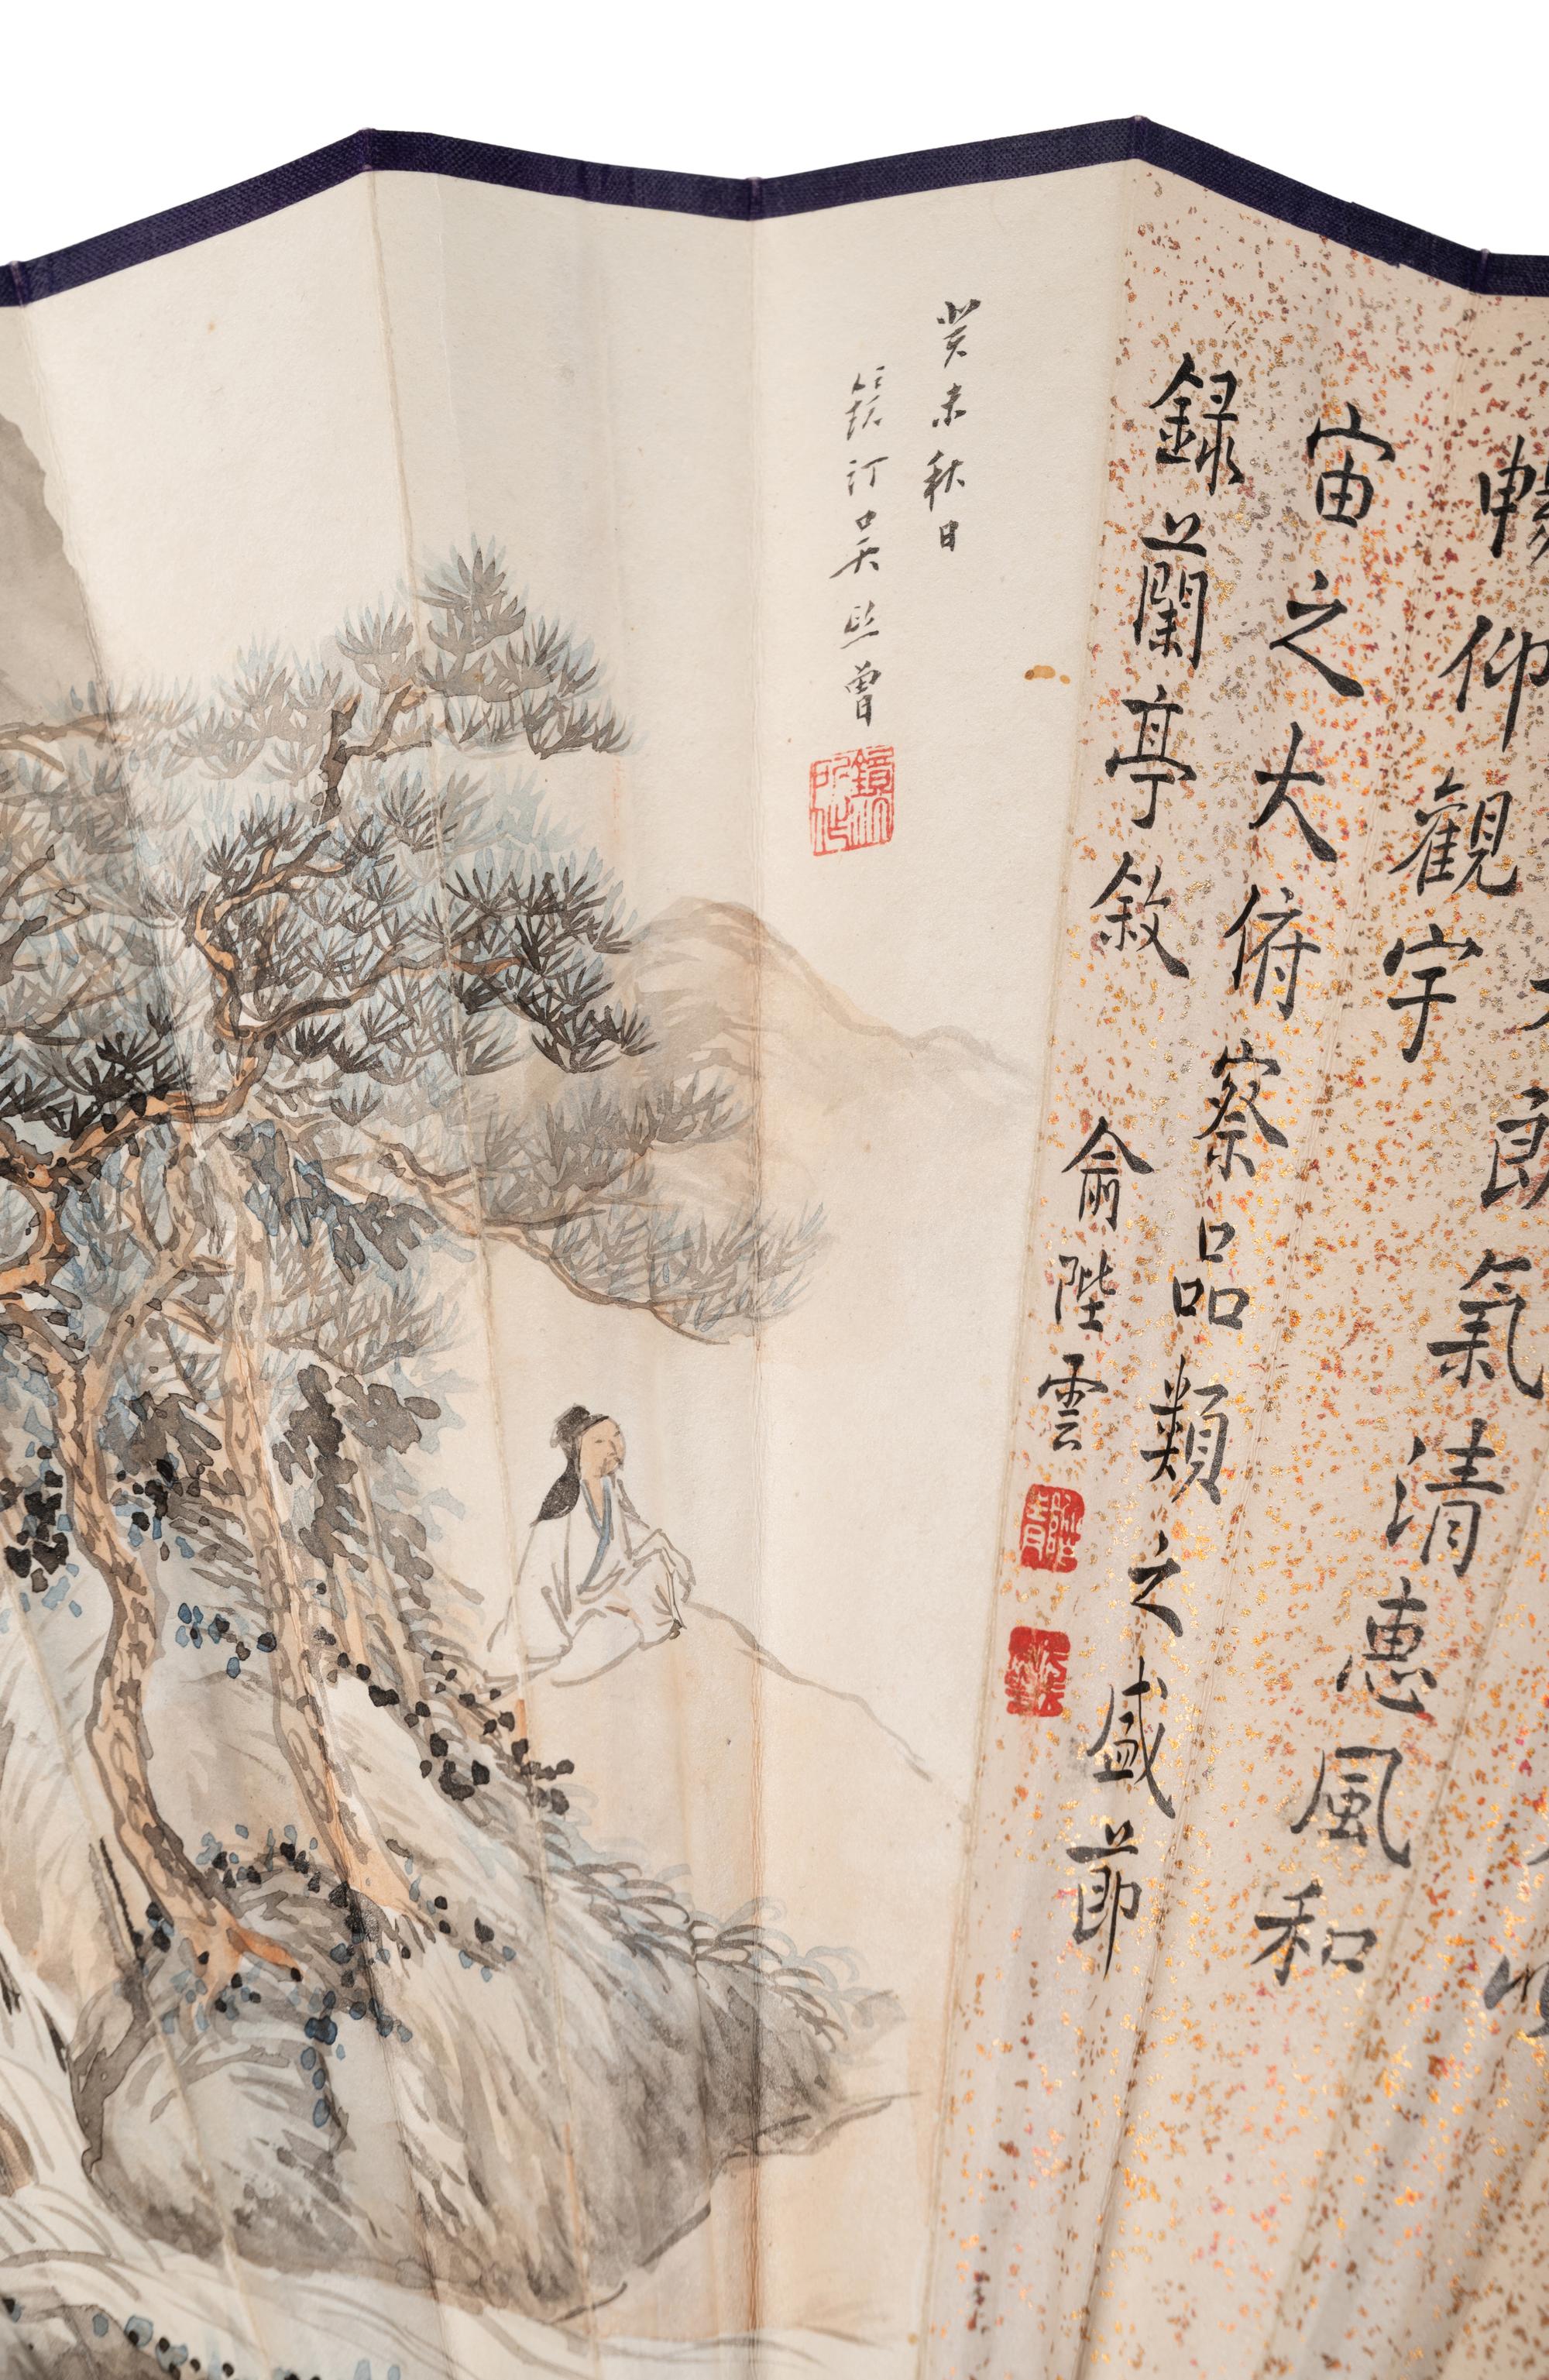 朗氣清惠風和
暢仰觀宇
宙之大俯察品類之盛節
錄蘭亭敘 俞陛雲
階青
癸未秋日
鏡汀吳熙曾
鏡汀所作